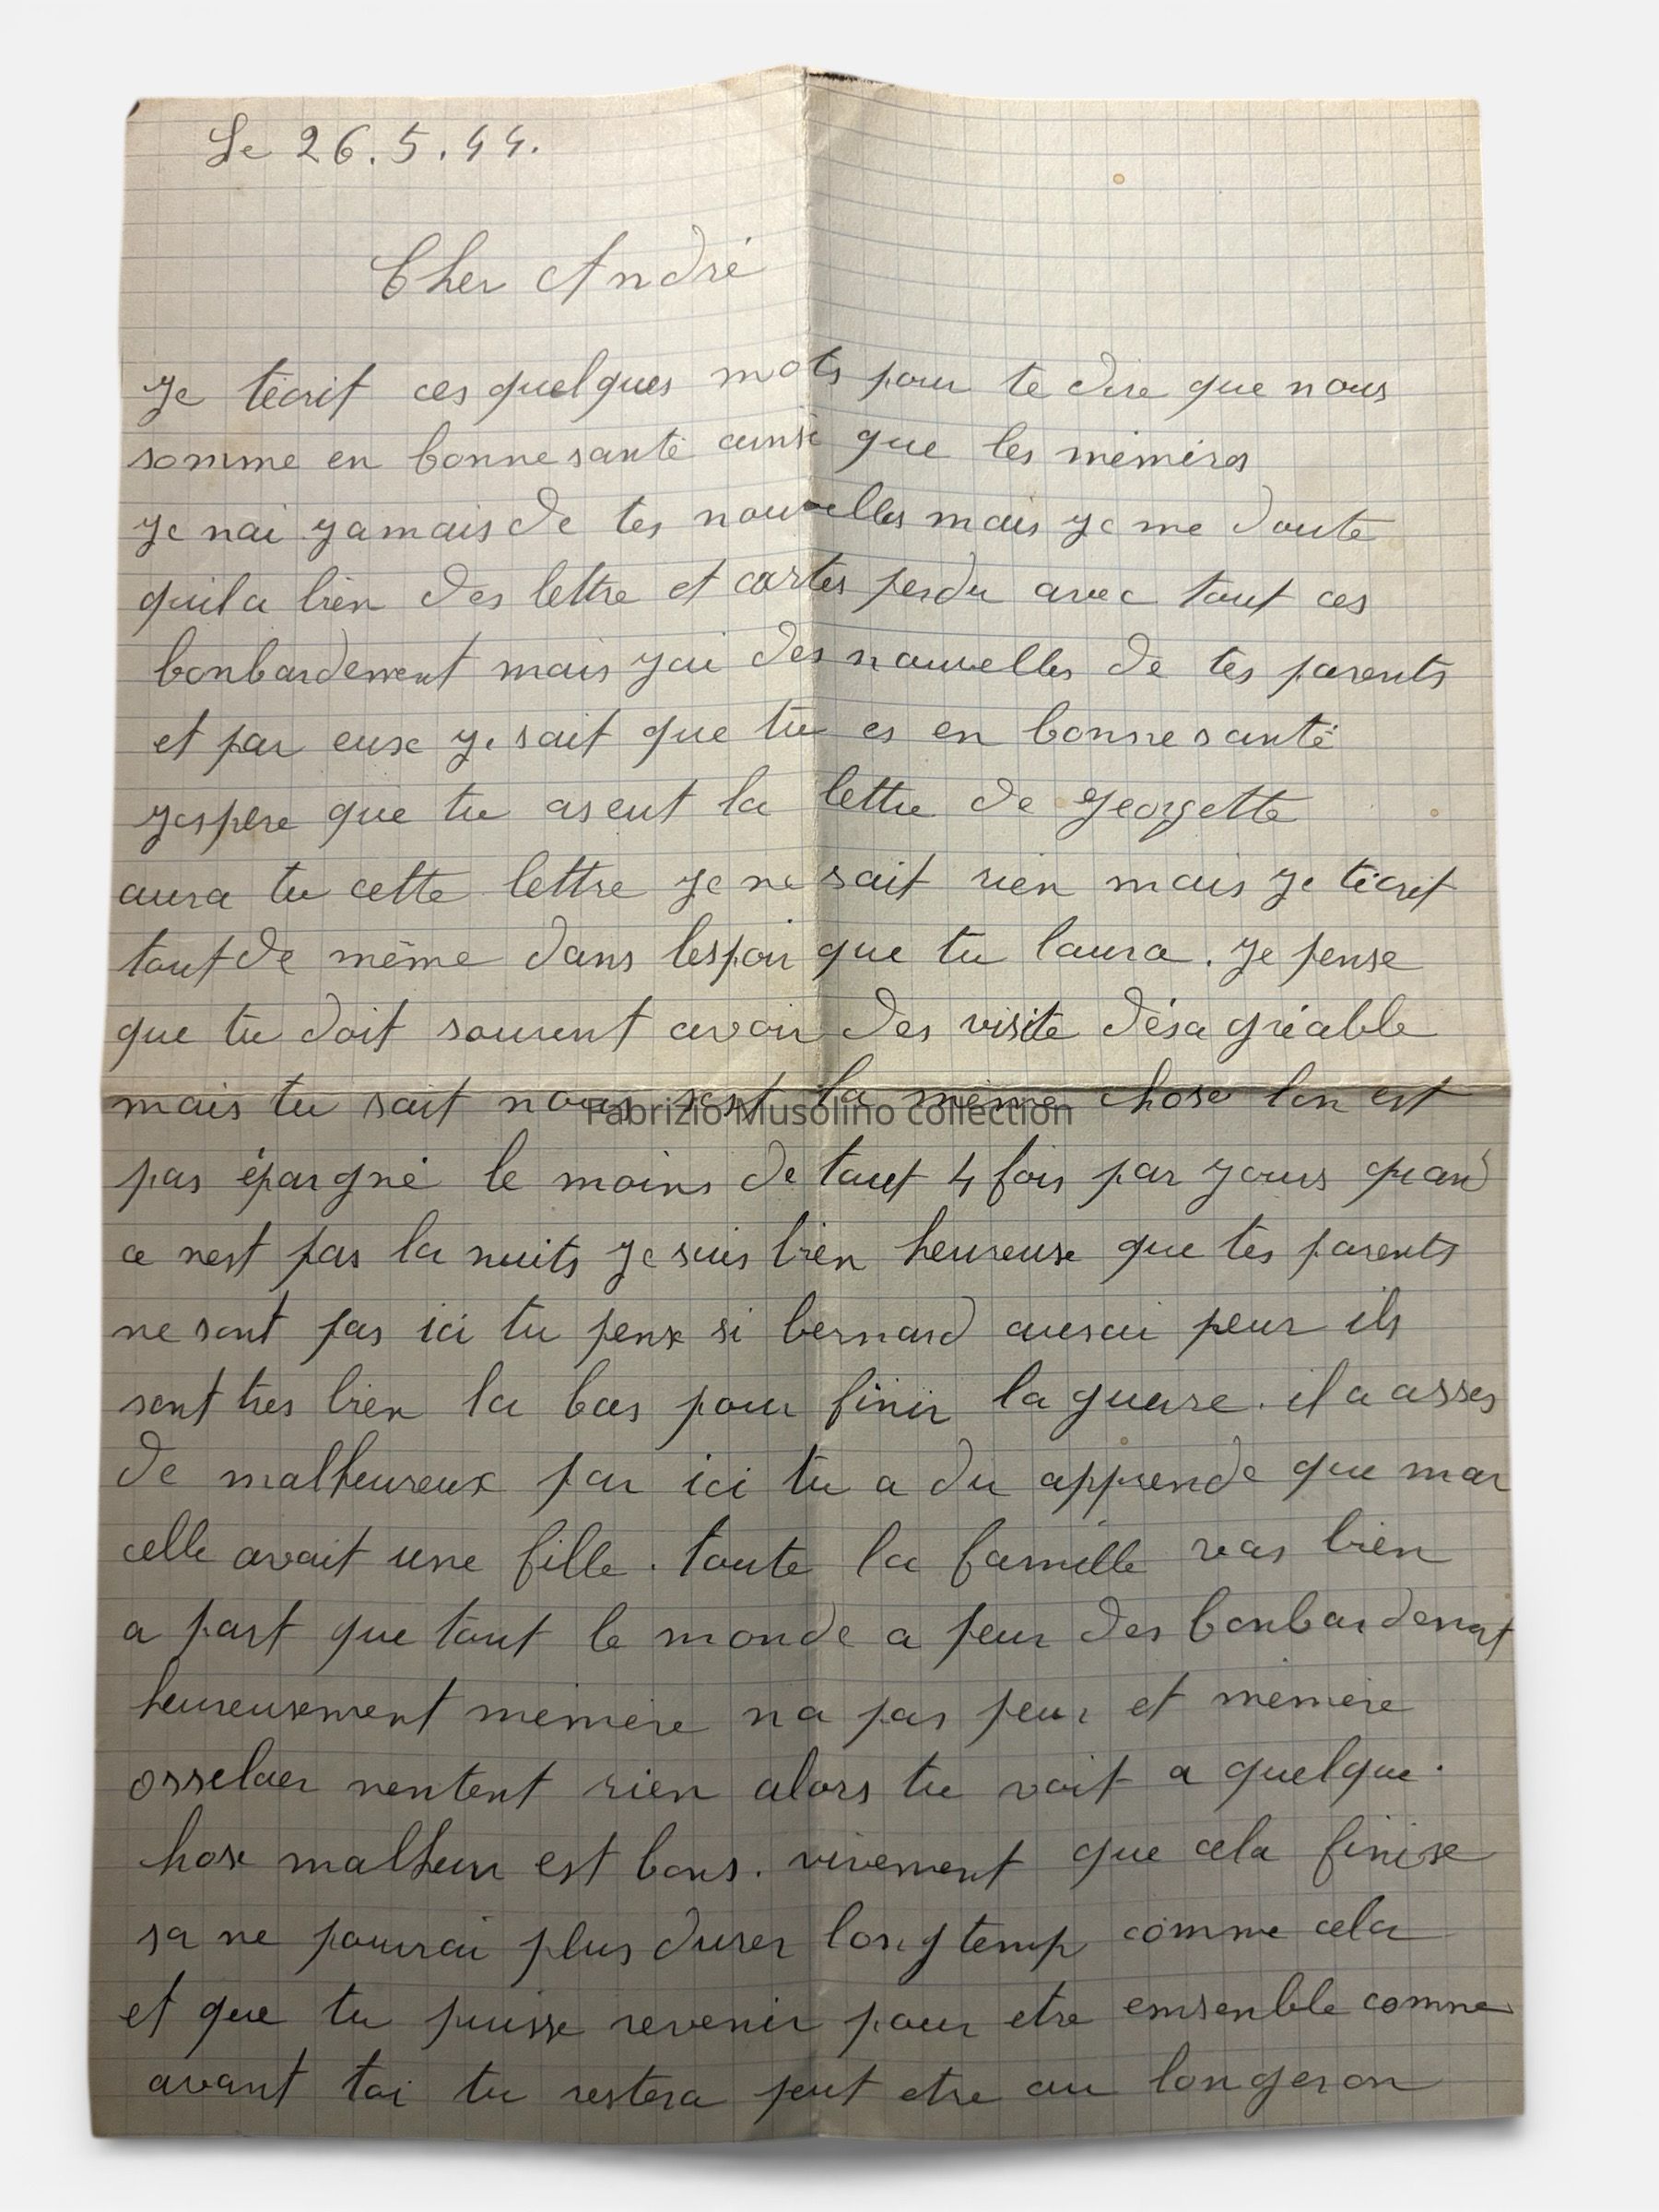 Le 26.5.44.
Cher André
Je técrit ces quelques mots pour te dire que nous
somme en bonne santé ainsi que les mémères
Je nai jamais de tes nouvelles mais je me doute
quila bien des lettre et cartes perdu avec tout ces
bonbardement mais jai des nouvelles de tes parents
et par euse je sait que tu es en bonne santé
jespère que tu as eut la lettre de georgette
aura tu cette lettre je ne sait rien mais je técrit
tout de même dans lespoir que tu laura. Je pense
que tu doit souvent avoir des visite désagréable
mais tu sait nous sest la même chose lon est
Fabrizio Musolino collection
pas épargné le moins de tout 4 fois par jours quand
ce nest pas la nuits je suis bien heureuse que tes parents
ne sont pas ici tu pense si bernard aurai peur ils
sont tres bien la bas pour finir la guerre. il a asses
de malheureux par ici tu a du apprende que mar
celle avait une fille. toute la famille vas bien
a part que tout le monde a peur des bonbardemat
heureusement mémère na pas peur et mémère
osselaer nentent rien alors tu voit a quelque
hose malheur est bons. vivement que cela finise
sa ne pourrai plus durer longtemp comme cela
et que tu puisse revenir pour etre emsenble comme
avant toi tu restera peut etre au longeron